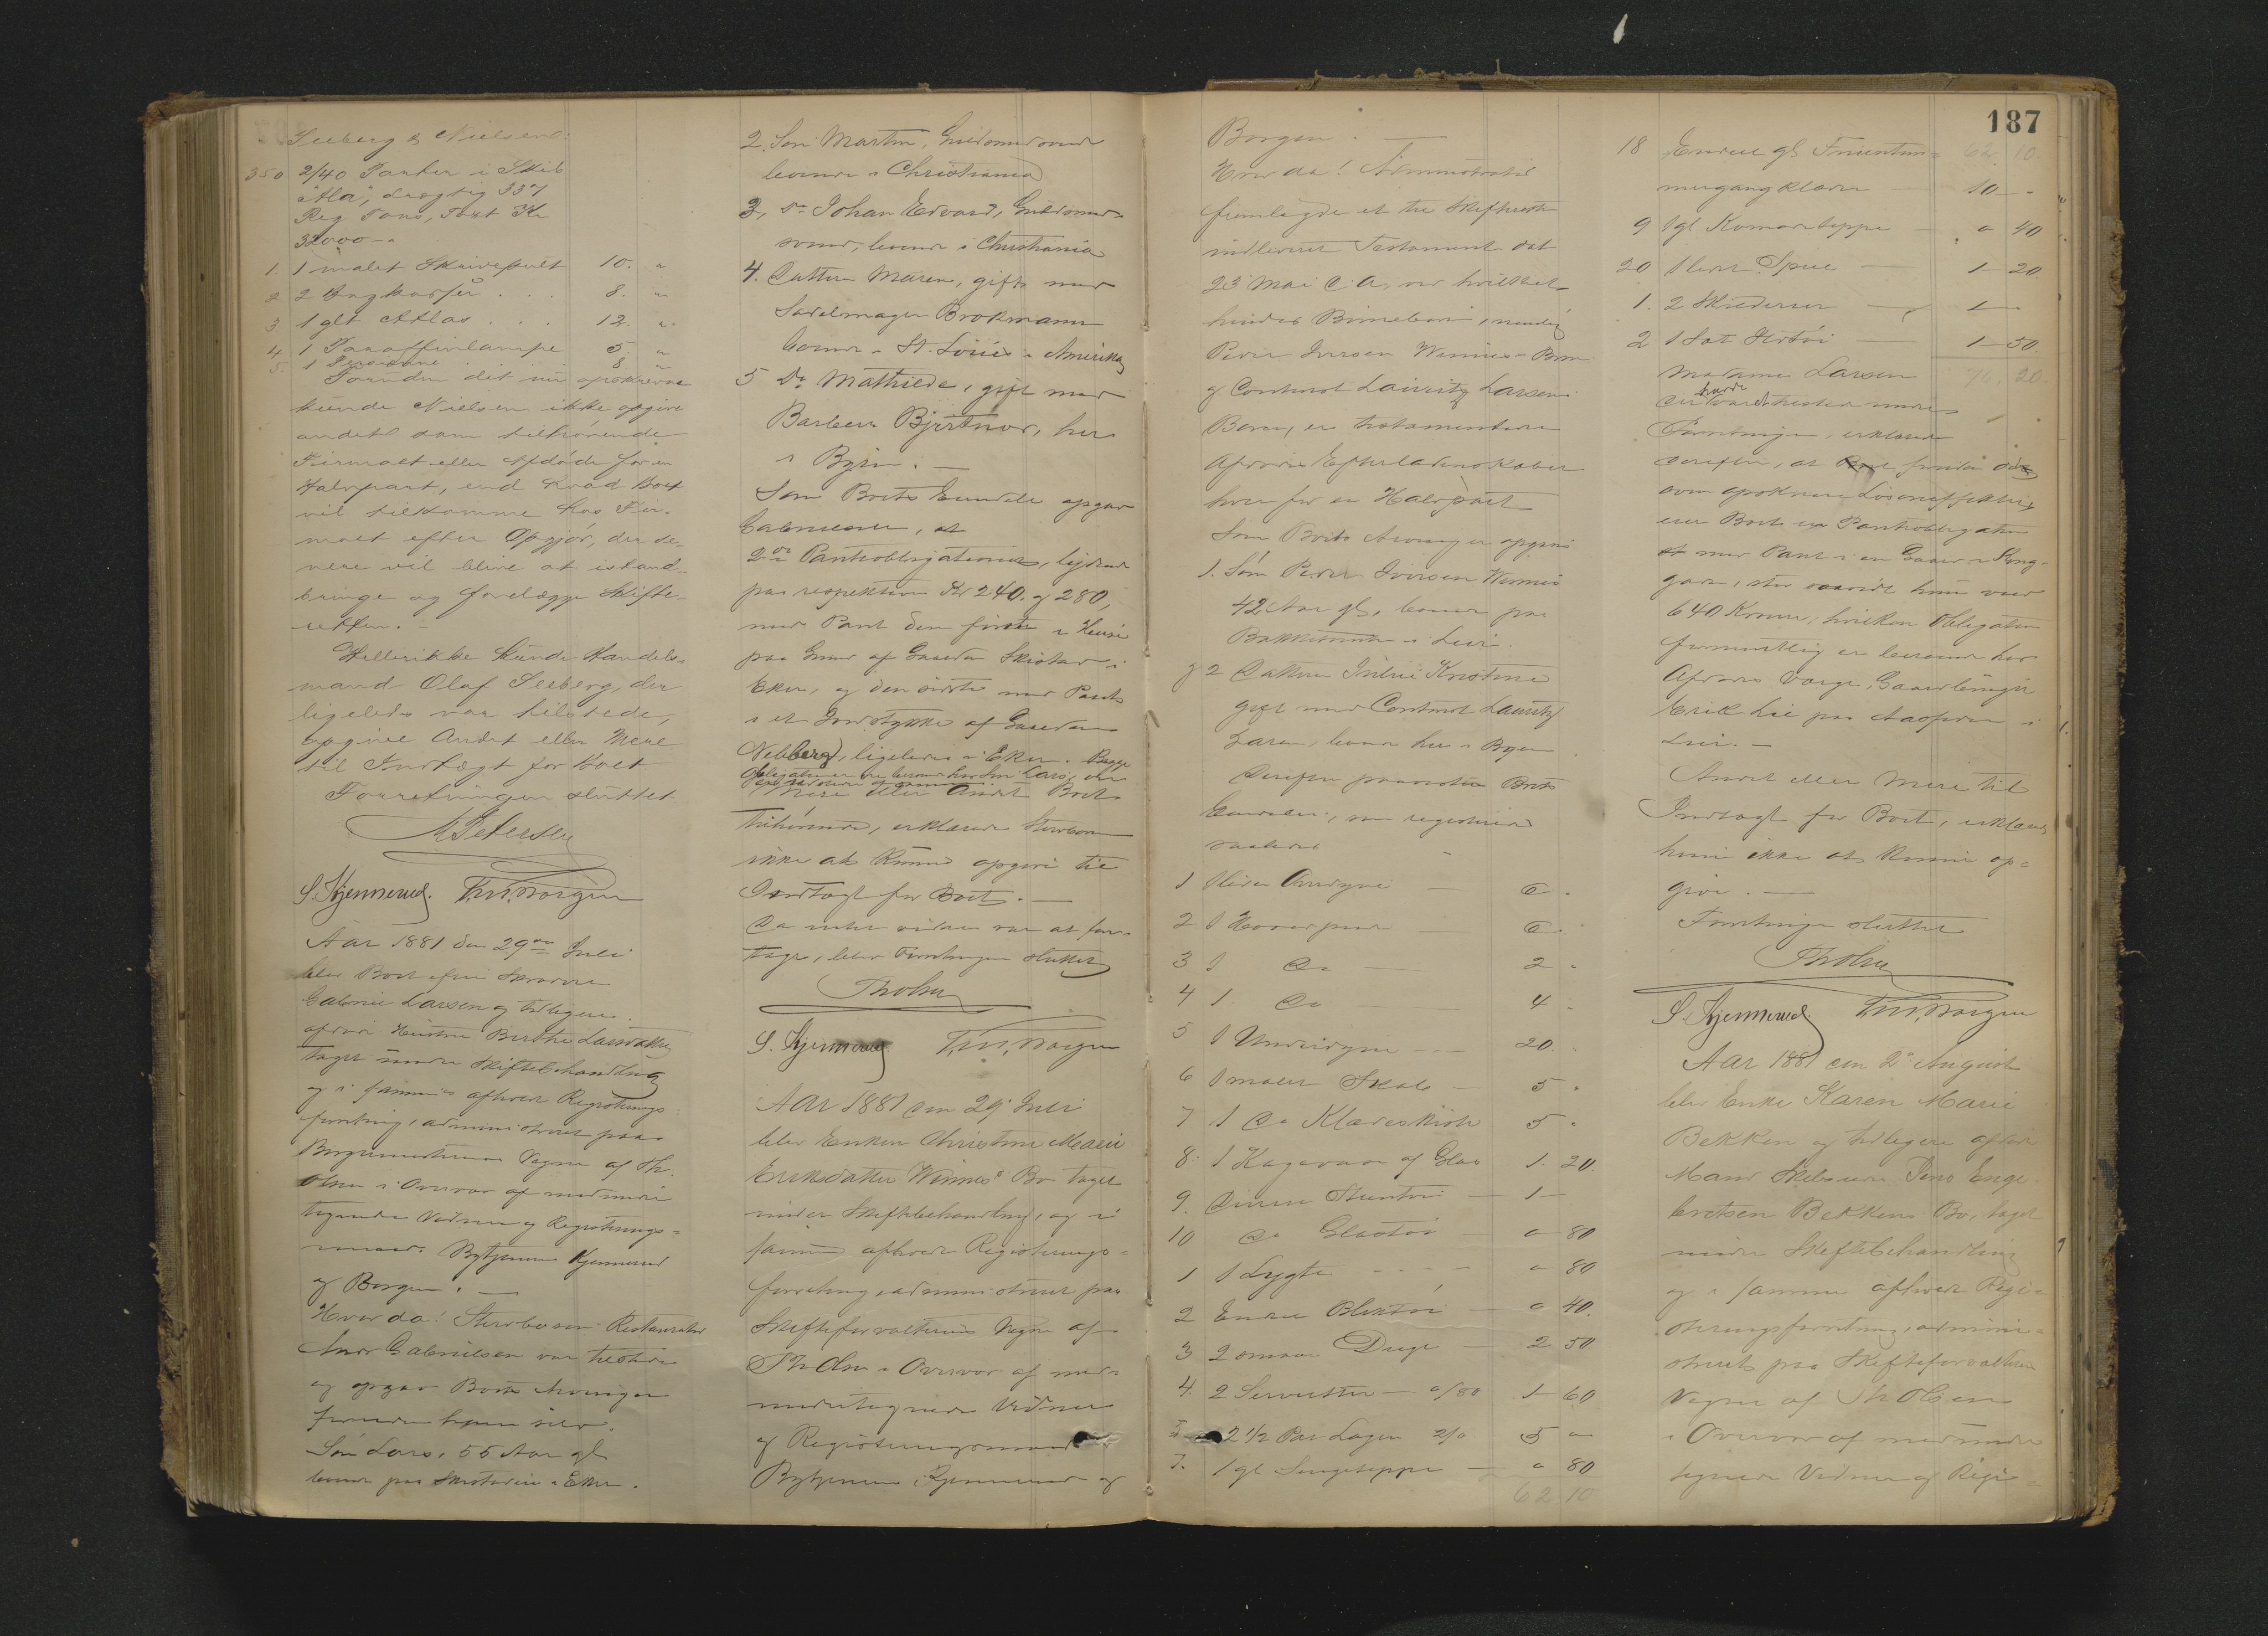 Seeberg & Nielsen:
350 2/40 Parter i Skib
"Ala", drægtig 337
Reg Tons, Taxt Kr
32000 - "
1. 1 malet Skrivepult 10. "
2 2 . . . 8. "
3 1 glt Atlas . . . 12. "
4 1 Paraffinlampe 5 "
5. 1 8 "
Foruden det nu opskrevne
kunde Nielsen ikke opgive
andet som tilhørende
Firmaet eller Afdøde for en
Halvpart, end hvad Boet
vil tilkomme hos Fir-
maet efter Opgjør, der se-
nere vil blive at istand-
bringe og forelægge Skifte-
retten. -
Hellerikke kunde Handels-
mand Olaf Seeberg, der
ligeledes var tilstede,
opgive Andet eller Mere
til Indtægt for Boet
Forretningen sluttet
A Petersen
S. Kjennerud. Th. M. Borgen
Aar 1881 den 29de Juli
blev Boet efter
Gabriel Larsen og tidligere
afdøde Hustru Berthe Larsdatter
taget under Skiftebehandling
og i samme afholdt Registrerings-
forretning, administreret paa
Borgermesterens Vegne af Th.
Olsen i Overvær af medunder-
tegnede Vidner og Registrerings-
mænd. Bytjenerne Kjennerud
og Borgen. -
Hvorda! Stervboern Restauratør
Andr Gabrielsen var tilstede
og opgav Boets Arvinger
foruden ham selv.
Søn Lars, 55 Aar gl
boende paa i Eker.
2. Søn Martin, Guldsmedsvend
boende i Christiania
3, Do Johan Edvard, Guldsmed-
svend, boende i Christiania
4. Datter Maren, gift med
Sadelmager Brokmann
boende i St. Louis i Amerika
5 Do Mathilde, gift med
Barber Bjertnes, her
i Byen. -
Som Boets Eiendele opgav
Gabrielsen, at
2de Pantobligationer, lydende
paa respektive Kr 240. og 280,
med Pant den første i Huse
paa Grund af Gaarden i
Eker, og den sidste med Pant
i et Jordstykke af Gaarden
Nebberg, ligeledes i Eker. Begge
Obligationer ere beroende hos Søn Lars,
Mere eller Andet Boet
tilhørende, erklærede Stervboern
ikke at kunne opgive til
Indtægt for Boet. -
Da intet videre var at fore-
tage, blev Forretningen sluttet
Th Olsen
S. Kjennerud Th. M. Borgen
Aar 1881 den 29' Juli
blev Enken Christine Marie
Eriksdatter Winnes' Bo taget
under Skiftebehandling, og i
samme afholdt Registrerings-
forretning, administreret paa
Skifteforvalterens Vegne af
Th Olsen i Overvær af med-
undertegnede Vidner
og Registreringsmænd
Bytjenerne Kjennerud og
187
Borgen. -
Hvorda! Administrator
fremlagde et til Skifteretten
indleveret Testament dat
23 Mai d. A, ved hvilket
hendes Børnebørn, nemlig
Peder Iversen Winnes's Børn
og Conturist Lauritz Larsens
Børn, er testamenteret
Afdødes Efterladenskaber
hver for en Halvpart
Som Boets Arvinger opgives
1. Søn Peder Iversen Winnes
42 Aar gl, boende paa
i Lier.
og 2 Datter Julie Kristine
gift med Conturist Lauritz
Larsen, boende her i Byen
Derefter paavistes Boets
Eiendele, som registreredes
saaledes
1 1 liden Overdyne - 6 "
2 1 Hovedpude - 6.
3 1 Do - 2 "
4 1 Do - 4 "
5 1 Underdyne - - 20. "
6 1 malet Skab - 5 "
7 1 Do Klædeskiste 5 "
8. 1 Kagevase af Glas 1. 20.
9. Diverse Stentøi - 1 -
10 Do Glastøi - " 80
1 1 Lygte - - - - " 80
2 Endel Bliktøi - " 40.
3 2 smaa Duge - 2 50
4. 2 Servietter - a/80 1 60
5 2 1/2 Par Lagen 2/0 5 "
7. 1 gl Sengeteppe - " 80
62 10
18 Endeel gl Fruentim- 62. 10.
mergangklæder - 10 - "
9 1 gl Komodeteppe - " 40
20 1 Speil - 1 20
1. 2 - 1 "
2 1 Sat - 1 50
Madame Larsen 20.
der var tilstede under
Forretningen, erklærede
derefter, at foruden de
som opskrevne Løsøreffekter
eier Boet en Pantobligation
med Pant i en Gaard i Kong-
gaden, stor saavidt hun veed
640 Kroner, hvilken Obligation
formentlig er beroende hos
Afdødes Værge, Gaardbruger
Erik Lie paa i
Lier. -
Andet eller Mere til
Indtægt for Boet, erklærede
hun ikke at kunne op-
give. -
Forretningen sluttet
Th Olsen
S. Kjennerud. Th. M. Borgen
Aar 1881 den 2' August
blev Enke Karen Marie
Bekken og tidligere afdøde
Mand Jens Enge-
bretsen Bekkens Bo, taget
under Skiftebehandling
og i samme afholdt Regi-
streringsforretning, admini-
streret paa Skifteforvalterens
Vegne af Th Olsen
i Overvær af medunder-
tegnede Vidner og Regis-